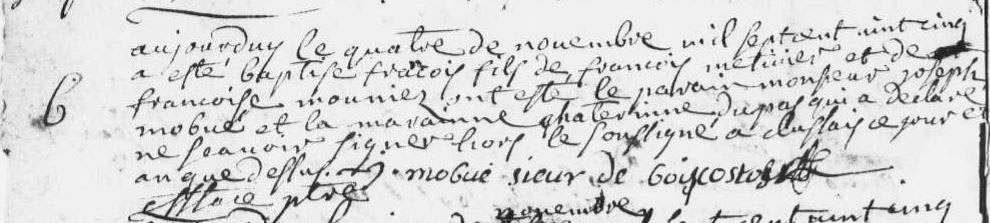 aujourduy le quatre de novembre mil sept cent vint cinq
B a esté baptise fracois fils de francois metivier et de
francoise mounier ont esté le parain monsieur joseph
mobué et la maraine chaterinne dupas qui a declare
ne scavoir signer hors le soussigne a clussais ce jour et
an que dessus mobué sieur de
ptre
novembre vint cinq